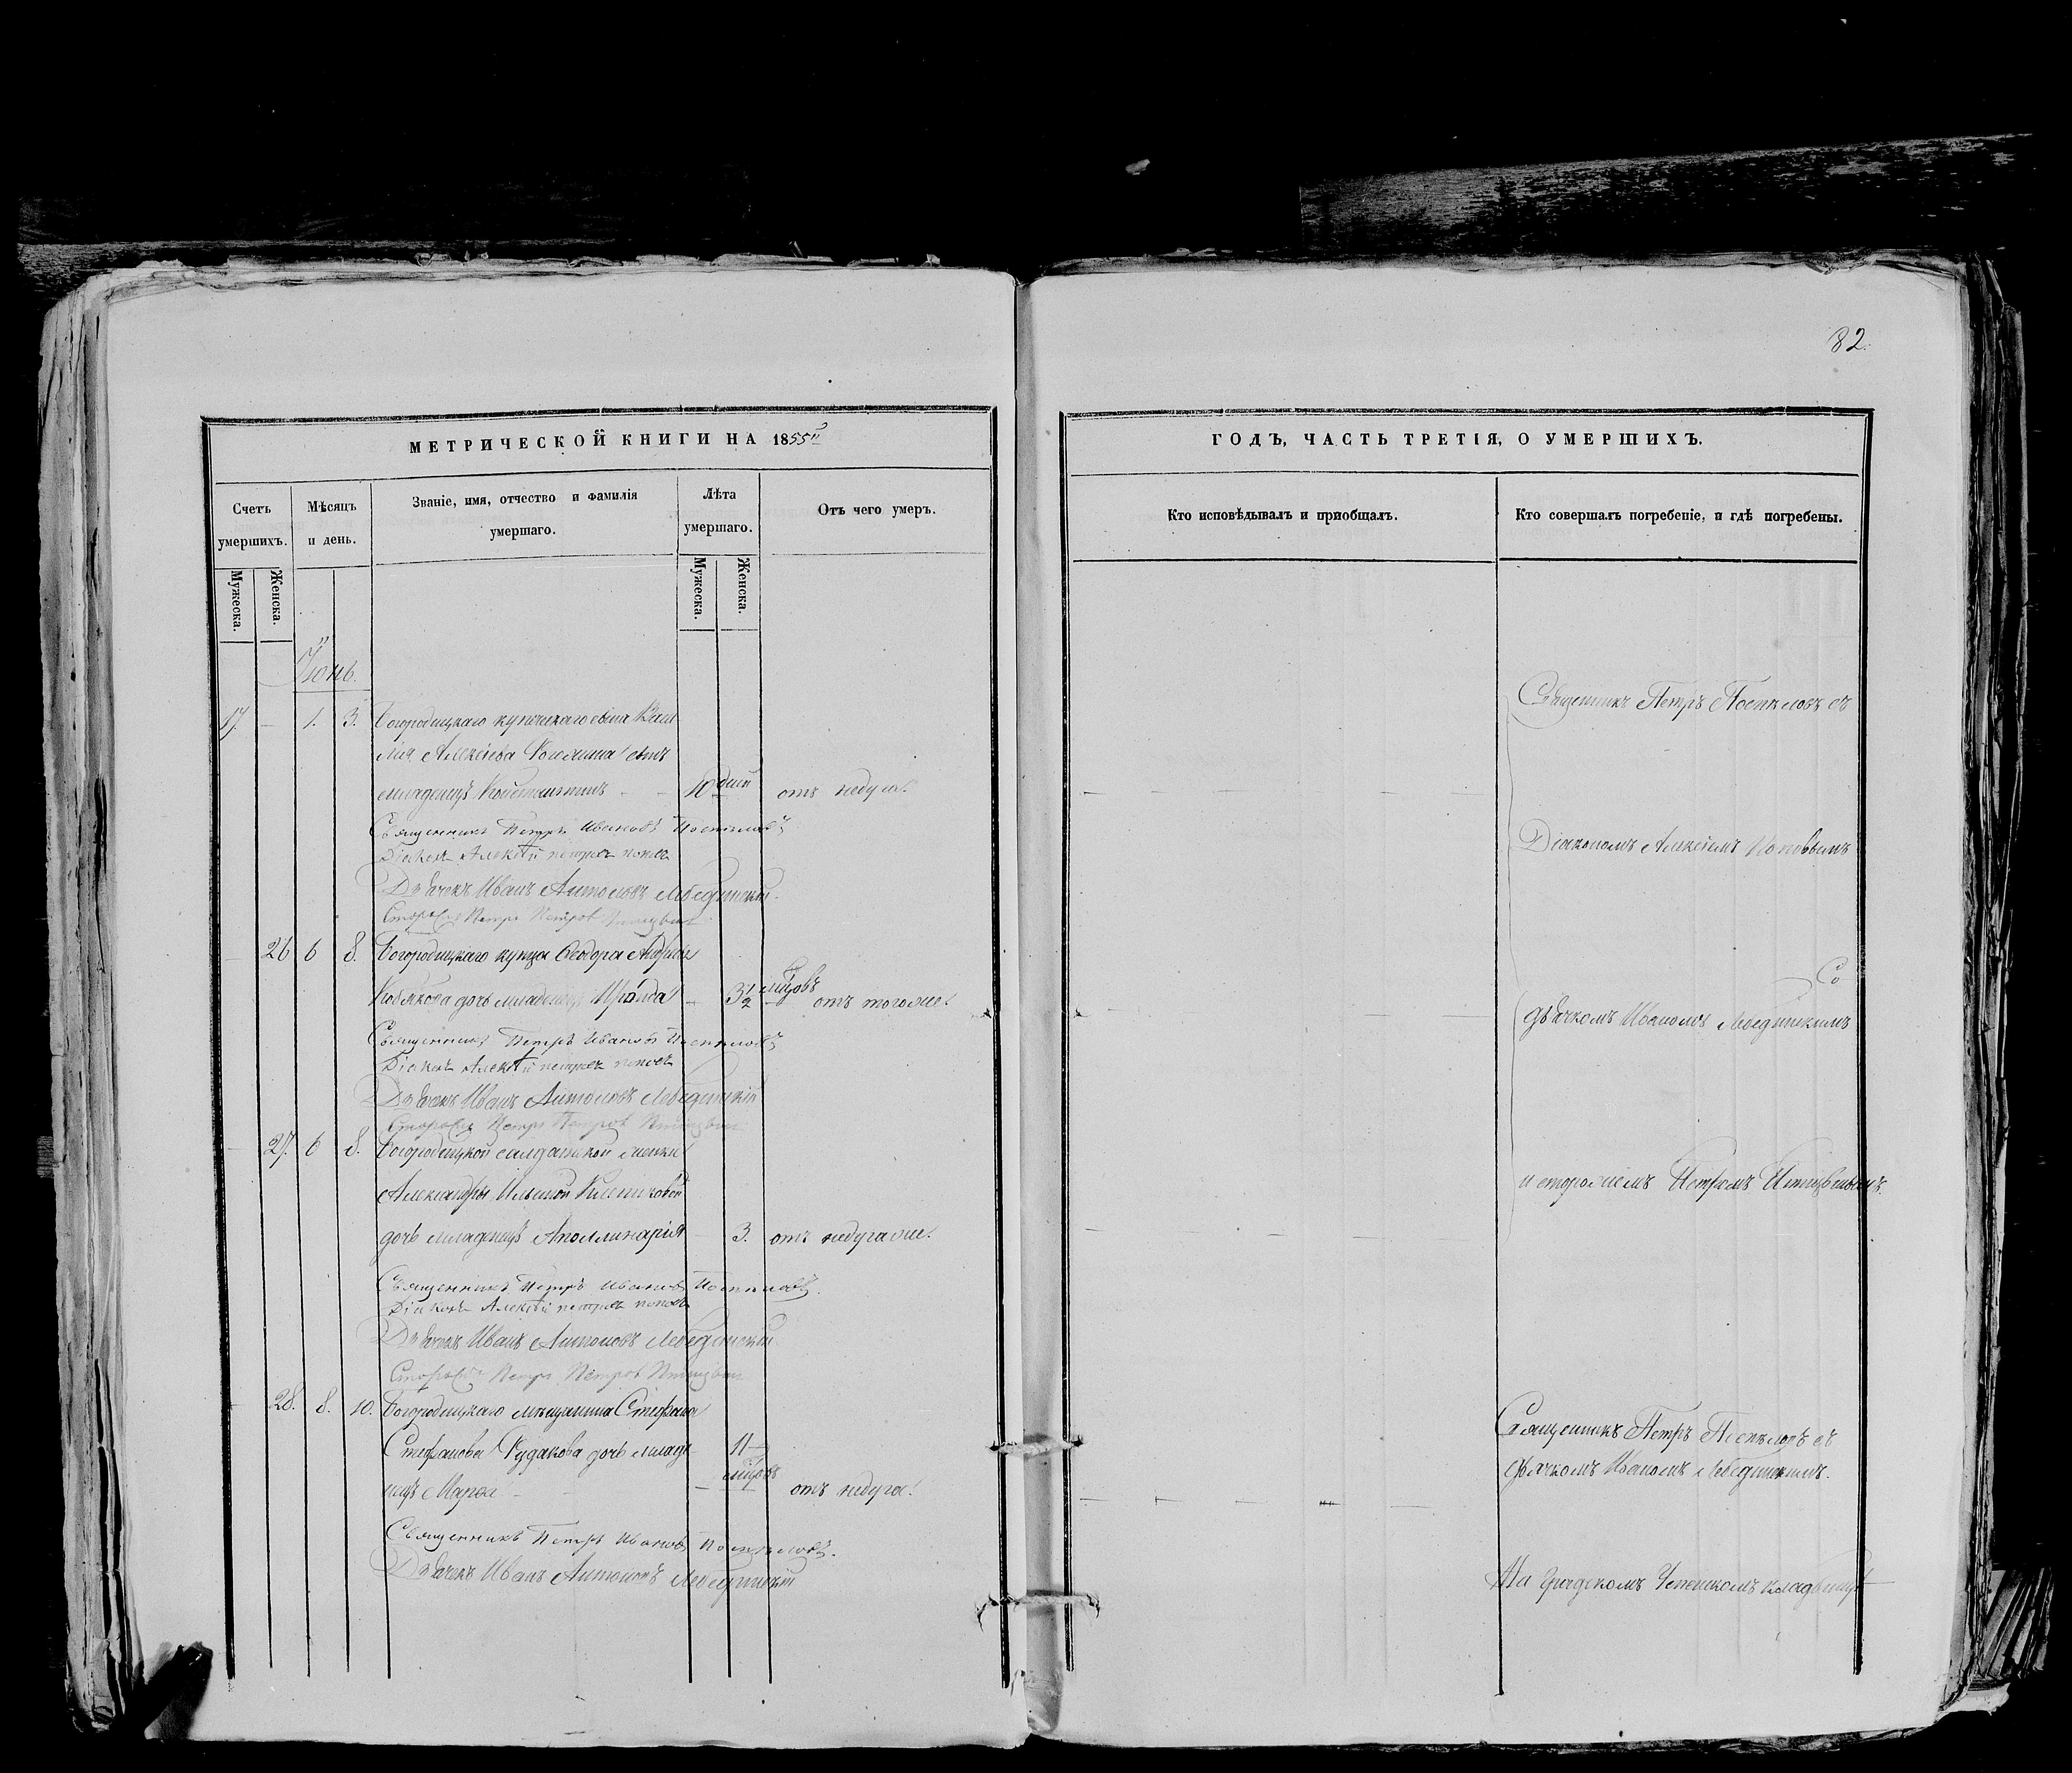 82.
МЕТРИЧЕСКОЙ КНИГИ НА 1855й
Счетъ умершихъ.
Мѣсяцъ и день.
Званіе, имя, отчество и фамилія умершаго.
Лѣта умершаго.
Отъ чего умеръ.
Мужеска.
Женска.
Мужеска.
Женска.
Іюнь.
17. – 1. 3. Богородицкаго купеческаго сына Васи
лія Алексѣева сынъ
младенецъ Константинъ – – 10 дней отъ недуга.
Священникъ Петръ Ивановъ Поспѣловъ
Діаконъ Алексѣй Петровъ Поповъ
Дьячекъ Иванъ Антоновъ Лебединскій.
Сторожъ Петръ Петровъ
– 26 6 8. Богородицкаго купца Ѳеодора
Кобякова дочь младенецъ Ираида – 3 1/2 мѣсяцовъ отъ тогоже.
Священникъ Петръ Ивановъ Поспѣловъ
Діаконъ Алексѣй Петровъ Поповъ
Дьячекъ Иванъ Антоновъ Лебединскій
Сторожъ Петръ Петровъ
– 27. 6 8. Богородицкой салдатской женки
Александры Ильиной
дочь младенецъ Аполлинарія – 3. отъ недуга же.
Священникъ Петръ Ивановъ Поспѣловъ.
Діаконъ Алексѣй Петровъ Поповъ
Дьячекъ Иванъ Антоновъ Лебединскій
Сторожъ Петръ Петровъ
– 28. 8. 10. Богородицкаго мѣщанина Стефана
Стефанова дочь младе
нецъ Марѳа – – 11 мѣсяцовъ отъ недуга.
Священникъ Петръ Ивановъ Поспѣловъ.
Дьячекъ Иванъ Антоновъ Лебединскій
ГОДЪ, ЧАСТЬ ТРЕТІЯ, О УМЕРШИХЪ.
Кто исповѣдывалъ и пріобщалъ.
Кто совершалъ погребеніе, и гдѣ погребены.
Священникъ Петръ Поспѣловъ съ
Діакономъ Алексіемъ Поповымъ
Со
дьячкомъ Иваномъ Лебединскимъ
и сторожемъ Петромъ
Священникъ Петръ Поспѣловъ съ
дьячкомъ Иваномъ Лебединскимъ.
На градскомъ Успенскомъ кладбищѣ